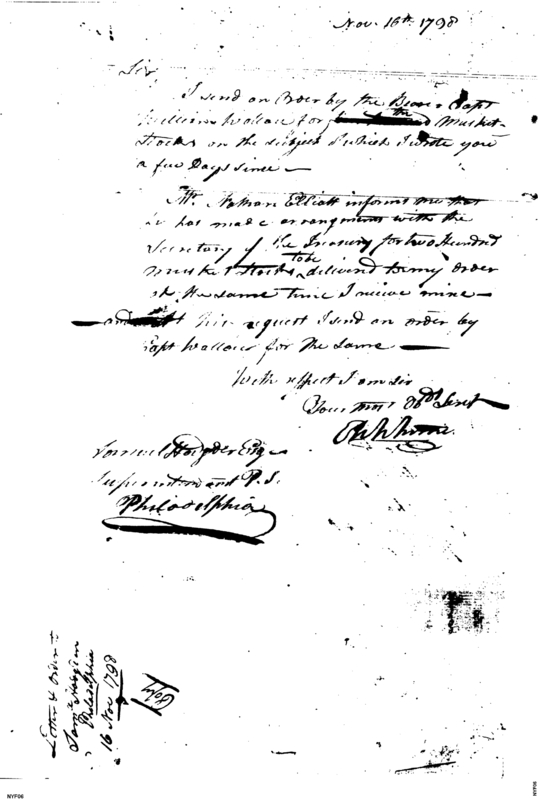 Nov. 16th 1798
Sir,
I send an Order by the Bearer Capt
William Wallace for the Musket
Stocks on the subject of which I wrote you
a few Days since —
Mr. Nathan Elliott informs me that
he has made arrangements with the
Secretary of the Treasury for two Hundred
musket stocks to be delivered to my order
at the same time I receive mine —
and at his request I send an order by
Capt Wallace for the same —
With respect I am Sir
Your most Obdt Servt
Eli Whitney
Samuel Hodgdon Esq
Superintendant P. S.
Philadelphia
Letter & Order
Saml Hodgdon
Philadelphia
16 Nov 1798
Copy
NYF06
NYF06